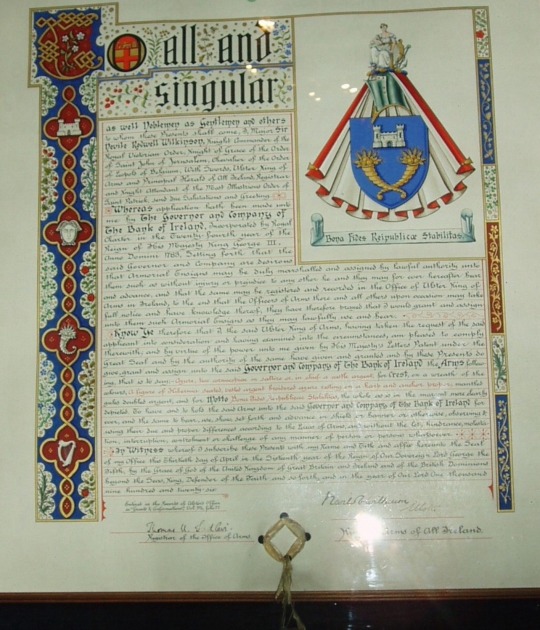 To all and
singular
as well Noblemen as Gentlemen and others
to whom these Presents shall come, I, Major Sir
Nevile Rodwell Wilkinson, Knight Commander of the
Royal Victorian Order, Knight of Grace of the Order
of Saint John of Jerusalem, Chevalier of the Order
of Leopold of Belgium, With Swords, Ulster King of
Arms and Principal Herald of All Ireland, Registrar
and Knight Attendant of the Most Illustrious Order of
Saint Patrick, send due Salutations and Greeting.
Whereas application hath been made unto
me by The Governor and Company of
The Bank of Ireland, incorporated by Royal
Charter in the Twenty-fourth year of the
Reign of His Majesty King George III.,
Anno Domini 1783, Setting forth that the
said Governor and Company are desirous
Bona Fides Reipublicæ Stabilitas
that Armorial Ensigns may be duly marshalled and assigned by lawful authority unto
them such as without injury or prejudice to any other he and they may for ever hereafter bear
and advance, and that the same may be registered and recorded in the Office of Ulster King of
Arms in Ireland, to the end that the Officers of Arms there and all others upon occasion may take
full notice and have knowledge thereof, they have therefore prayed that I would grant and assign
unto them such Armorial Ensigns as they may lawfully use and bear.
Know Ye therefore that I the said Ulster King of Arms, having taken the request of the said
applicant into consideration and having examined into the circumstances, am pleased to comply
therewith and by virtue of the power unto me given by His Majesty's Letters Patent under the
Great Seal and by the authority of the same have given and granted and by these Presents do
give, grant and assign unto the said Governor and Company of The Bank of Ireland the Arms
that is to say: Azure, two cornucopiae in saltire or, in chief a castle argent for Crest, on a wreath of the
colours, a figure of Hibernia
gules doubled argent, and for Motto Bona Fides Reipublicæ Stabilitas, the whole as in the margin more clearly
depicted. To have and to hold the said Arms unto the said Governor and Company of the Bank of Ireland for
ever, and the same to bear, use, shew, set forth and advance in shield or banner or otherwise, observing &
using their due and proper differences according to the Laws of Arms, and without the let, hindrance, molesta-
tion, interruption, controlment or challenge of any manner of person or persons whatsoever.
In Witness whereof I subscribe these Presents with my Name and Title and affix hereunto the Seal
of my Office this day of April in the Sixteenth year of the Reign of Our Sovereign Lord George the
Fifth, by the Grace of God of the United Kingdom of Great Britain and Ireland and of the British Dominions
beyond the Seas, King, Defender of the Faith and so forth, and in the year of Our Lord One thousand
nine hundred and twenty-six
Registrar of the Office of Arms.
Arms of All Ireland.